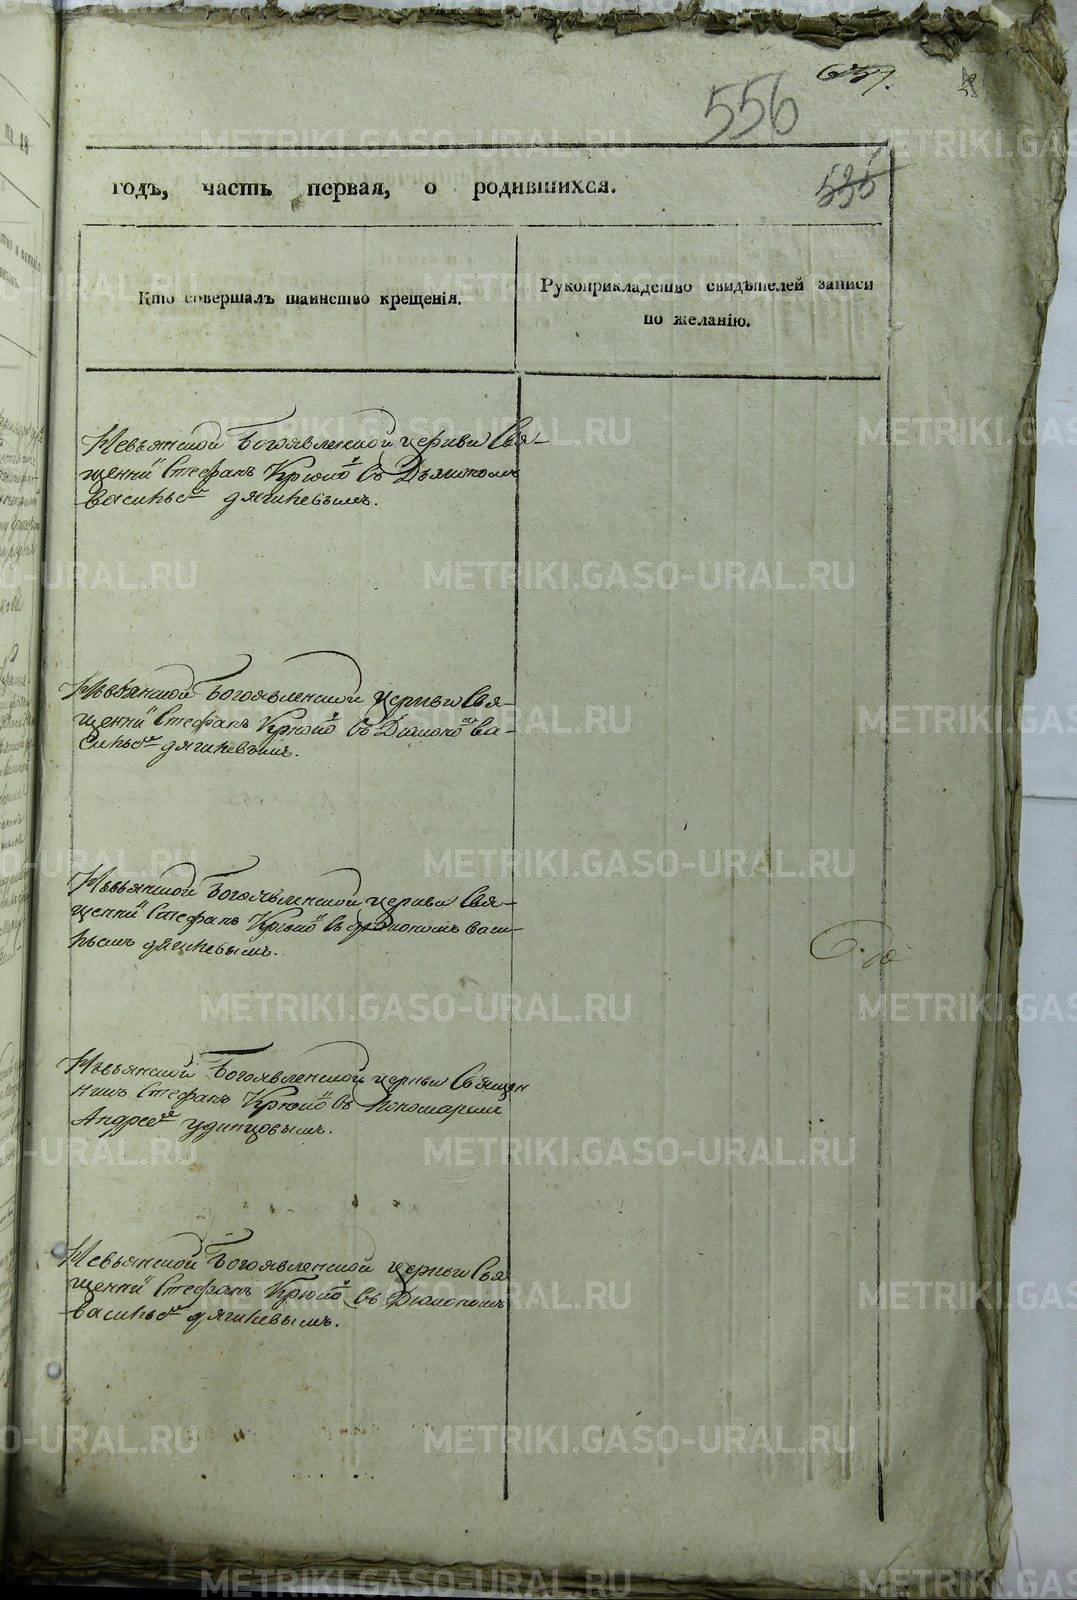 657.
556
535
годъ, часть первая, о родившихся.
Кто совершалъ таинство крещенія.
Рукоприкладство свидѣтелей записи
по желанію.
Невьянской Богоявленской церкви Свя-
щенни Стефанъ съ Дьякономъ
Василье Дягилевымъ.
Невьянской Богоявленской церкви Свя-
щенни Стефанъ съ Диакономъ Ва-
силье Дягилевымъ.
Невьянской Богоявленской церкви Свя-
щенни Стефанъ съ Диакономъ Васи-
льемъ Дягилевымъ.
Невьянской Богоявленской церкви Священ
никъ Стефанъ съ Пономаремъ
Андрее Удинцовымъ.
Невьянской Богоявленской церкви Свя
щенни Стефанъ съ Диакономъ
Василье Дягилевымъ.
METRIKI.GASO-URAL.RU